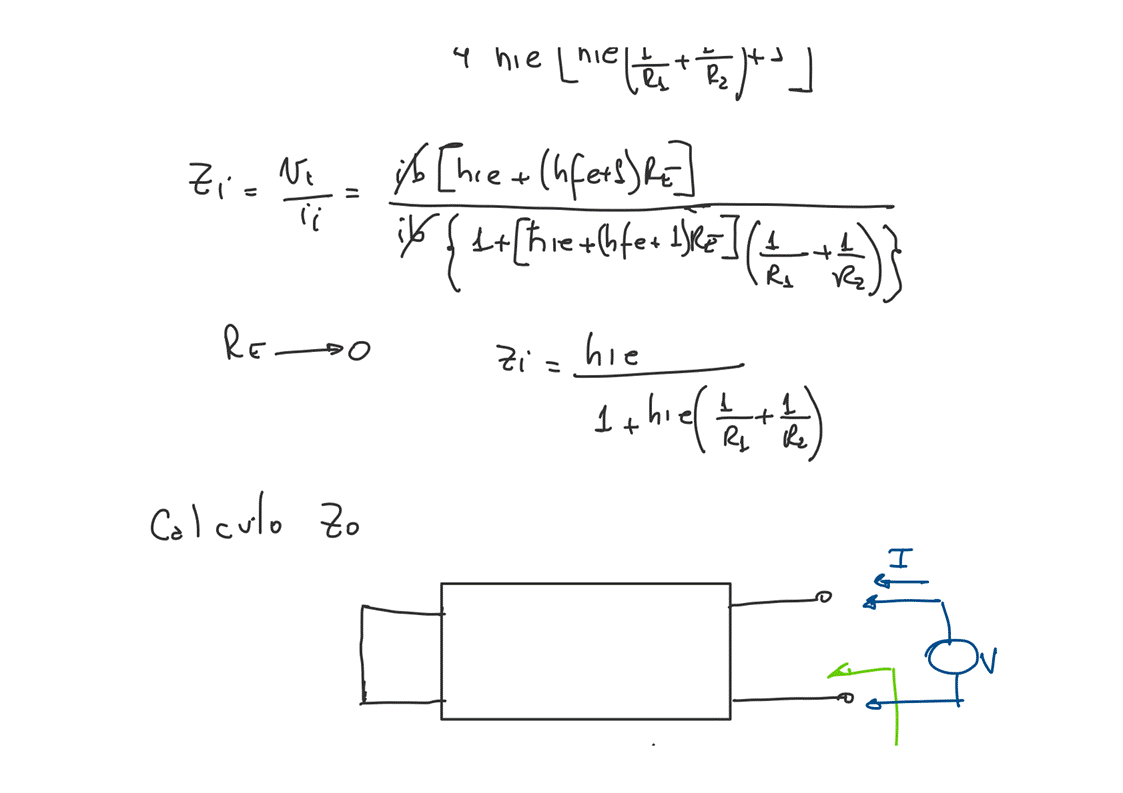 hie [hie(1/R1 + 1/R2) + 1]
Zi = Vi/ii = ib [hie + (hfe+1)RE] / ib {1+[hie+(hfe+1)RE](1/R1 + 1/R2)}
RE → 0 Zi = hie / 1 + hie(1/R1 + 1/R2)
Calculo Zo
I
V